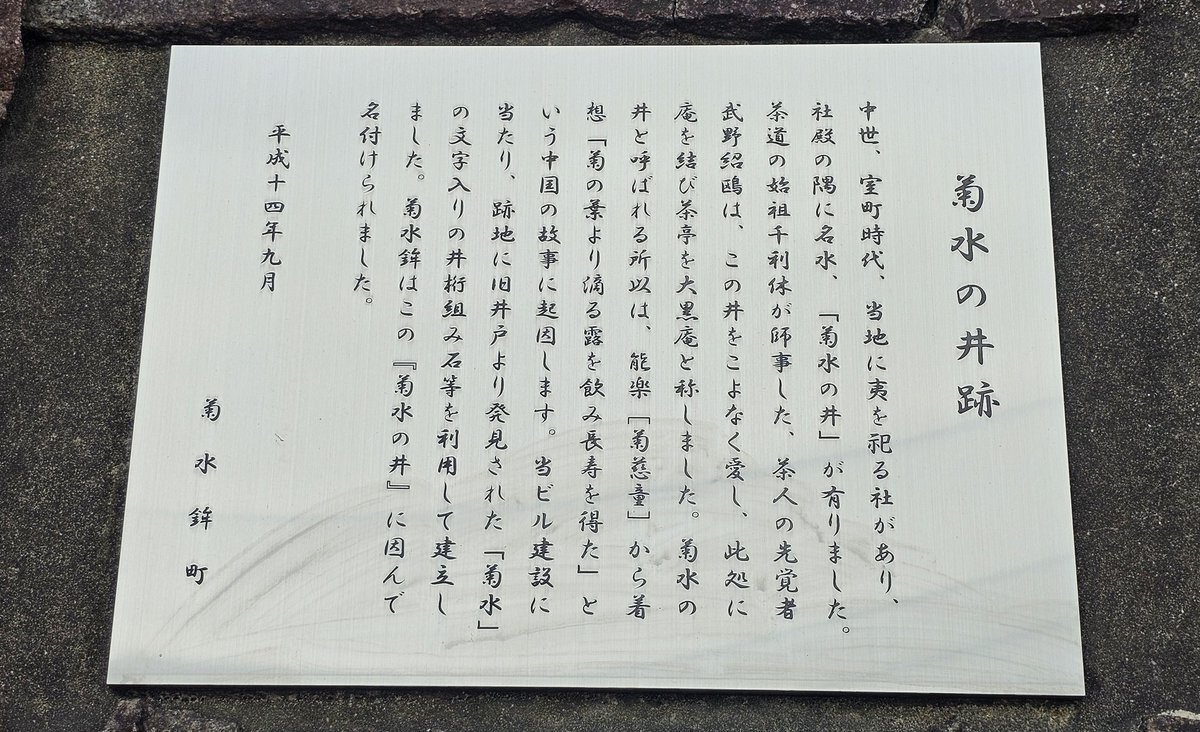 菊水の井跡
中世、室町時代、当地に夷を祀る社があり、
社殿の隅に名水、「菊水の井」が有りました。
茶道の始祖千利休が師事した、茶人の先覚者
武野紹鴎は、この井をこよなく愛し、此処に
庵を結び茶亭を大黒庵と称しました。菊水の
井と呼ばれる所以は、能楽「菊慈童」から着
想「菊の葉より滴る露を飲み長寿を得た」と
いう中国の故事に起因します。当ビル建設に
当たり、跡地に旧井戸より発見された「菊水」
の文字入りの井桁組み石等を利用して建立し
ました。菊水鉾はこの『菊水の井』に因んで
名付けられました。
平成十四年九月
菊水鉾町